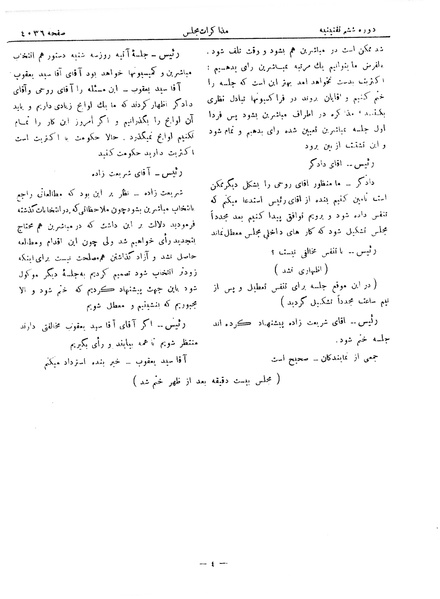 دوره ششم تقنینیه
مذاکرات مجلس
صفحه ۴۰۳۶
شد ممکن است در مباشرین هم بشود و وقت تلف شود .
بالفرض ما بتوانیم یك مرتبه مباشرین رای بدهیم :
اکثریت بدست نخواهد آمد بهتر این است که جلسه را
ختم کنیم و آقایان بروند در فراکسیونها تبادل نظری
بکنند و مذاکره در اطراف مباشرین بشود پس فردا
اول جلسه مباشرین تعیین شده رای بدهیم و تمام شود
و این تشتت از بین برود
رئیس ـ آقای دادگر
دادگر ـ ما منظور آقای روحی را بشکل دیگر ممکن
است تأمین کنیم بنده از آقای رئیس استدعا میکنم که
تنفس داده شود و برویم توافقی پیدا کنیم بعد مجدداً
مجلس تشکیل شود که کار های داخلی مجلس معطل نماند
رئیس ـ با تنفس مخالفی نیست ؟
( اظهاری نشد )
( در این موقع جلسه برای تنفس تعطیل و پس از
نیم ساعت مجدداً تشکیل گردید )
رئیس ـ آقای شریعت زاده پیشنهاد کرده اند
جلسه ختم شود.
جمعی از نمایندگان ـ صحیح است
رئیس ـ جلسهٔ آتیه روز سه شنبه دستور هم انتخاب
مباشرین و کمیسیونها خواهد بود آقای آقا سید یعقوب
آقا سید یعقوب ـ این مسئله را آقای روحی و آقای
دادگر اظهار کردند که ما یك لوایح زیادی داریم و باید
آن لوایح را بگذرانیم و اگر امروز این کار را تمام
نکنیم لوایح نمیگذرد . حالا حکومت با اکثریت است
اکثریت دارید حکومت کنید
رئیس ـ آقای شریعت زاده
شریعت زاده ـ نظر بر این بود که مطالعاتی راجع
بانتخاب مباشرین بشود چون ملاحظاتی که در انتخابات گذشته
فرمودید دلالت بر این داشت که در مباشرین هم محتاج
بتجدید رأی خواهیم شد ولی چون این اقدام و مطالعه
حاصل نشد و آزاد گذاشتن هم مصلحت نیست برای اینکه
زودتر انتخاب شود تصمیم کردیم بجلسهٔ دیگر موکول
شود باین جهت پیشنهاد کردیم که ختم شود و الا
مجبوریم که بنشینیم و معطل شویم
رئیس ـ اگر آقای آقا سید یعقوب مخالفتی دارند
منتظر شویم تا همه بیایند و رأی بگیریم
آقا سید یعقوب ـ خیر بنده استرداد میکنم
( مجلس بیست دقیقه بعد از ظهر ختم شد )
ـ ٤ ـ